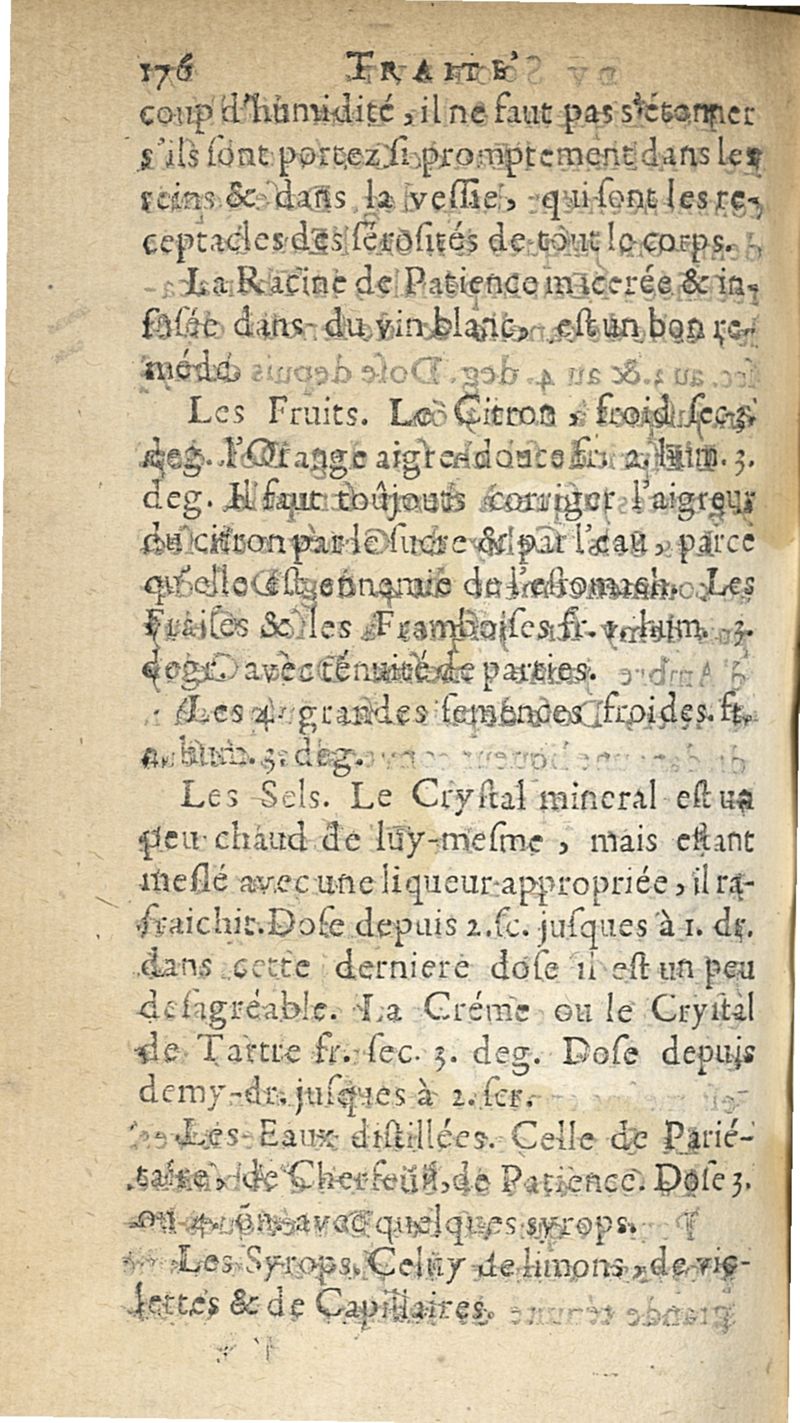 176 TRAITE'
coup d'humidité, il ne faut pas s'étonner
s'ils sont portez si promptement dans les
reins & dans la vessie, qui sont les re-
ceptacles des sérosités de tout le corps.
La Racine de Patience macerée & in-
fusée dans du vin blanc, est un bon re-
méde
Les Fruits. Le Citron, froid sec 3
deg. l'Orange aigre-douce fr. 2. hum. 3.
deg. Il faut toûjours corriger l'aigreur
du citron par le sucre & par l'eau, parce
qu'elle est ennamie de l'estomach. Les
Fraises & les Framboises fr. 1. hum. 3.
deg. avec ténuité de parties.
Les 4. grandes semences froides. fr.
hum. 3. deg.
Les Sels. Le Crystal mineral est un
peu chaud de luy-mesme, mais estant
meslé avec une liqueur appropriée, il ra-
fraichir. Dose depuis 2. sc. jusques à 1. dr.
dans cette derniere dose il est un peu
desagréable. La Créme ou le Crystal
de Tartre fr. sec. 3. deg. Dose depuis
demy-dr. jusques à 2. scr.
Les Eaux distillées. Celle de Parié-
taire, de Cherfeuil, de Patience. Dose 3.
ou 4 avec quelques syrops.
Les Syrops. Celuy de limons, de vio-
lettes & de Capillaires.